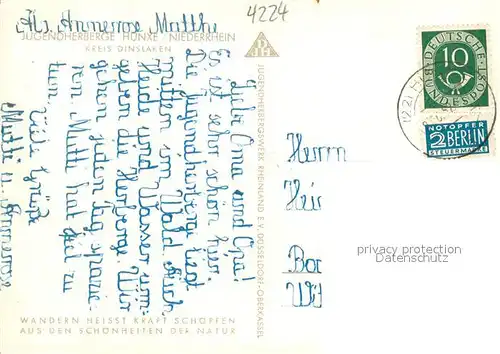 Abs. Annerose Matthe
4224
JUGENDHERBERGE HÜNXE / NIEDERRHEIN
KREIS DINSLAKEN
Liebe Oma und Opa!
Es ist sehr schön hier.
Die Jugendherberge liegt
mitten im Wald. Auch
Heide und Wasser um-
geben die Herberge. Wir
gehen jeden Tag spazie-
ren. Mutti hat viel zu
tun.
Viele Grüße
Mutti u. Annerose
JUGENDHERBERGSWERK RHEINLAND E.V. DÜSSELDORF-OBERKASSEL
WANDERN HEISST KRAFT SCHÖPFEN
AUS DEN SCHÖNHEITEN DER NATUR
DEUTSCHE
BUNDESPOST
10
NOTOPFER
2 BERLIN
STEUERMARKE
Herrn
privacy protection
Datenschutz